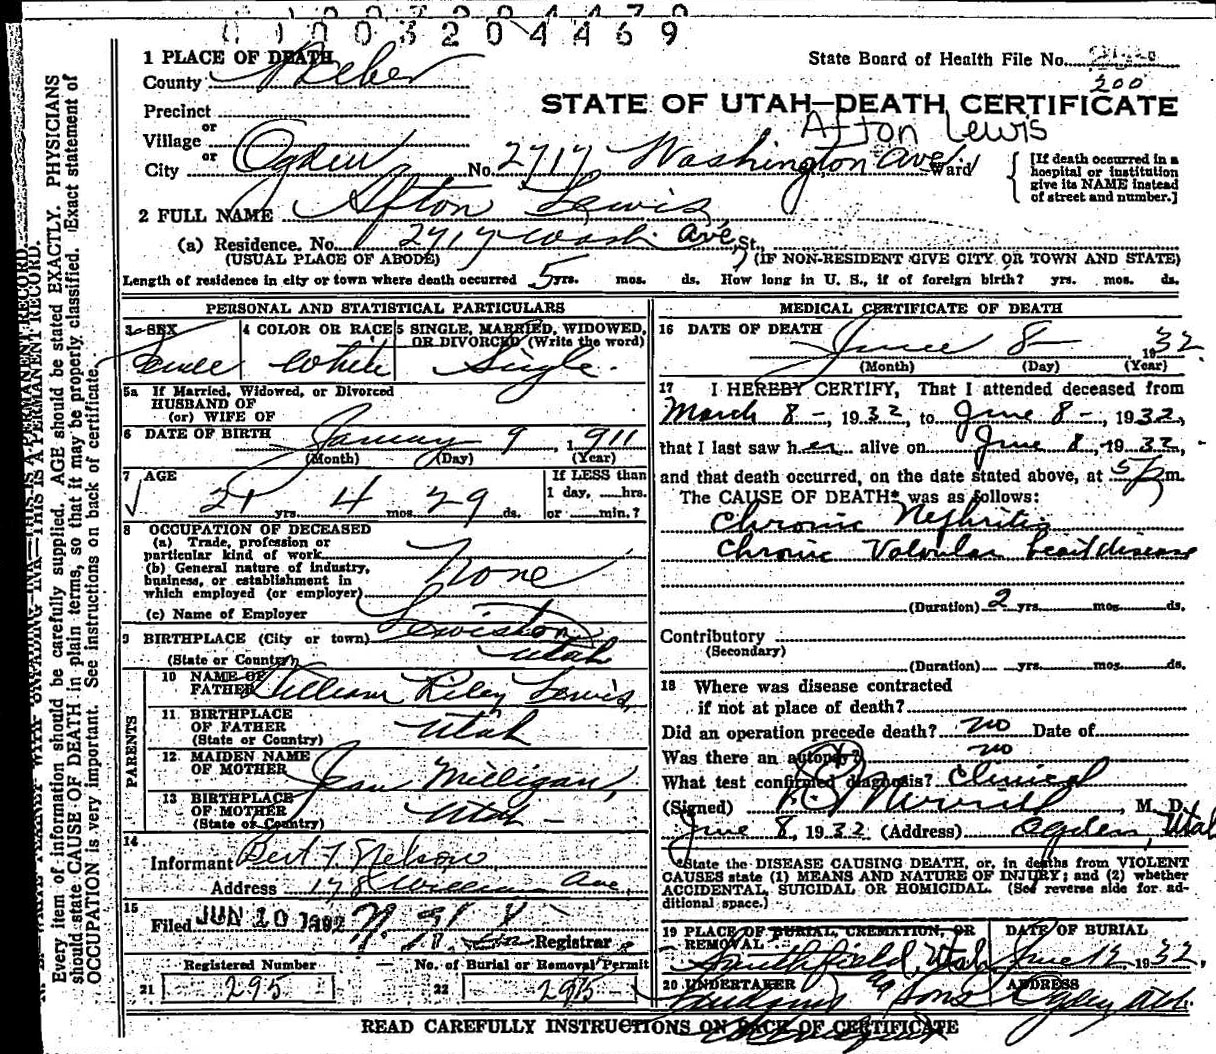 0 0 3 2 0 4 4 6 9
1 PLACE OF DEATH
County Weber
State Board of Health File No.
200
Precinct
STATE OF UTAH—DEATH CERTIFICATE
Afton Lewis
or
Village
or
City Ogden No. 2717 Washington Ave Ward
[If death occurred in a hospital or institution give its NAME instead of street and number.]
2 FULL NAME Afton Lewis
(a) Residence. No. 2717 Wash Ave, St.,
(USUAL PLACE OF ABODE) (IF NON-RESIDENT GIVE CITY OR TOWN AND STATE)
Length of residence in city or town where death occurred 5 yrs. mos. ds. How long in U. S., if of foreign birth? yrs. mos. ds.
PERSONAL AND STATISTICAL PARTICULARS
3 SEX
4 COLOR OR RACE White
5 SINGLE, MARRIED, WIDOWED, OR DIVORCED (Write the word)
Single.
5a If Married, Widowed, or Divorced
HUSBAND OF
(or) WIFE OF
6 DATE OF BIRTH January 9, 1911
(Month) (Day) (Year)
7 AGE
21 yrs. 4 mos. 29 ds.
If LESS than
1 day, hrs.
or min.?
8 OCCUPATION OF DECEASED
(a) Trade, profession or
particular kind of work
(b) General nature of industry,
business, or establishment in
which employed (or employer)
None
(c) Name of Employer
9 BIRTHPLACE (City or town) Lewiston
(State or Country) Utah
PARENTS
10 NAME OF FATHER William Riley Lewis,
11 BIRTHPLACE OF FATHER (State or Country) Utah
12 MAIDEN NAME OF MOTHER Jean Milligan,
13 BIRTHPLACE OF MOTHER (State or Country) Utah
14
Informant Bert F. Nelson
Address William Ave
15
Filed JUN 10
Registrar
Registered Number
21 295
No. of Burial or Removal Permit
22 295
MEDICAL CERTIFICATE OF DEATH
16 DATE OF DEATH
June 8 1932
(Month) (Day) (Year)
17 I HEREBY CERTIFY, That I attended deceased from
March 8-, 1932, to June 8-, 1932,
that I last saw her alive on June 8, 1932,
and that death occurred, on the date stated above, at m.
The CAUSE OF DEATH* was as follows:
Chronic Nephritis
Chronic Valvular heart disease
(Duration) 2 yrs. mos. ds.
Contributory
(Secondary)
(Duration) yrs. mos. ds.
18 Where was disease contracted
if not at place of death?
Did an operation precede death? no Date of
Was there an autopsy? no
What test confirmed diagnosis? Clinical
(Signed) Merrill, M. D.
June 8, 1932 (Address) Ogden, Utah
*State the DISEASE CAUSING DEATH, or, in deaths from VIOLENT
CAUSES state (1) MEANS AND NATURE OF INJURY; and (2) whether
ACCIDENTAL, SUICIDAL OR HOMICIDAL. (See reverse side for ad-
ditional space.)
19 PLACE OF BURIAL, CREMATION, OR REMOVAL
Smithfield, Utah
DATE OF BURIAL
June 12, 1932,
20 UNDERTAKER
& Sons
ADDRESS
Ogden Utah
READ CAREFULLY INSTRUCTIONS ON BACK OF CERTIFICATE
Every item of information should be carefully supplied. AGE should be stated EXACTLY. PHYSICIANS
should state CAUSE OF DEATH in plain terms, so that it may be properly classified. Exact statement of
OCCUPATION is very important. See instructions on back of certificate.